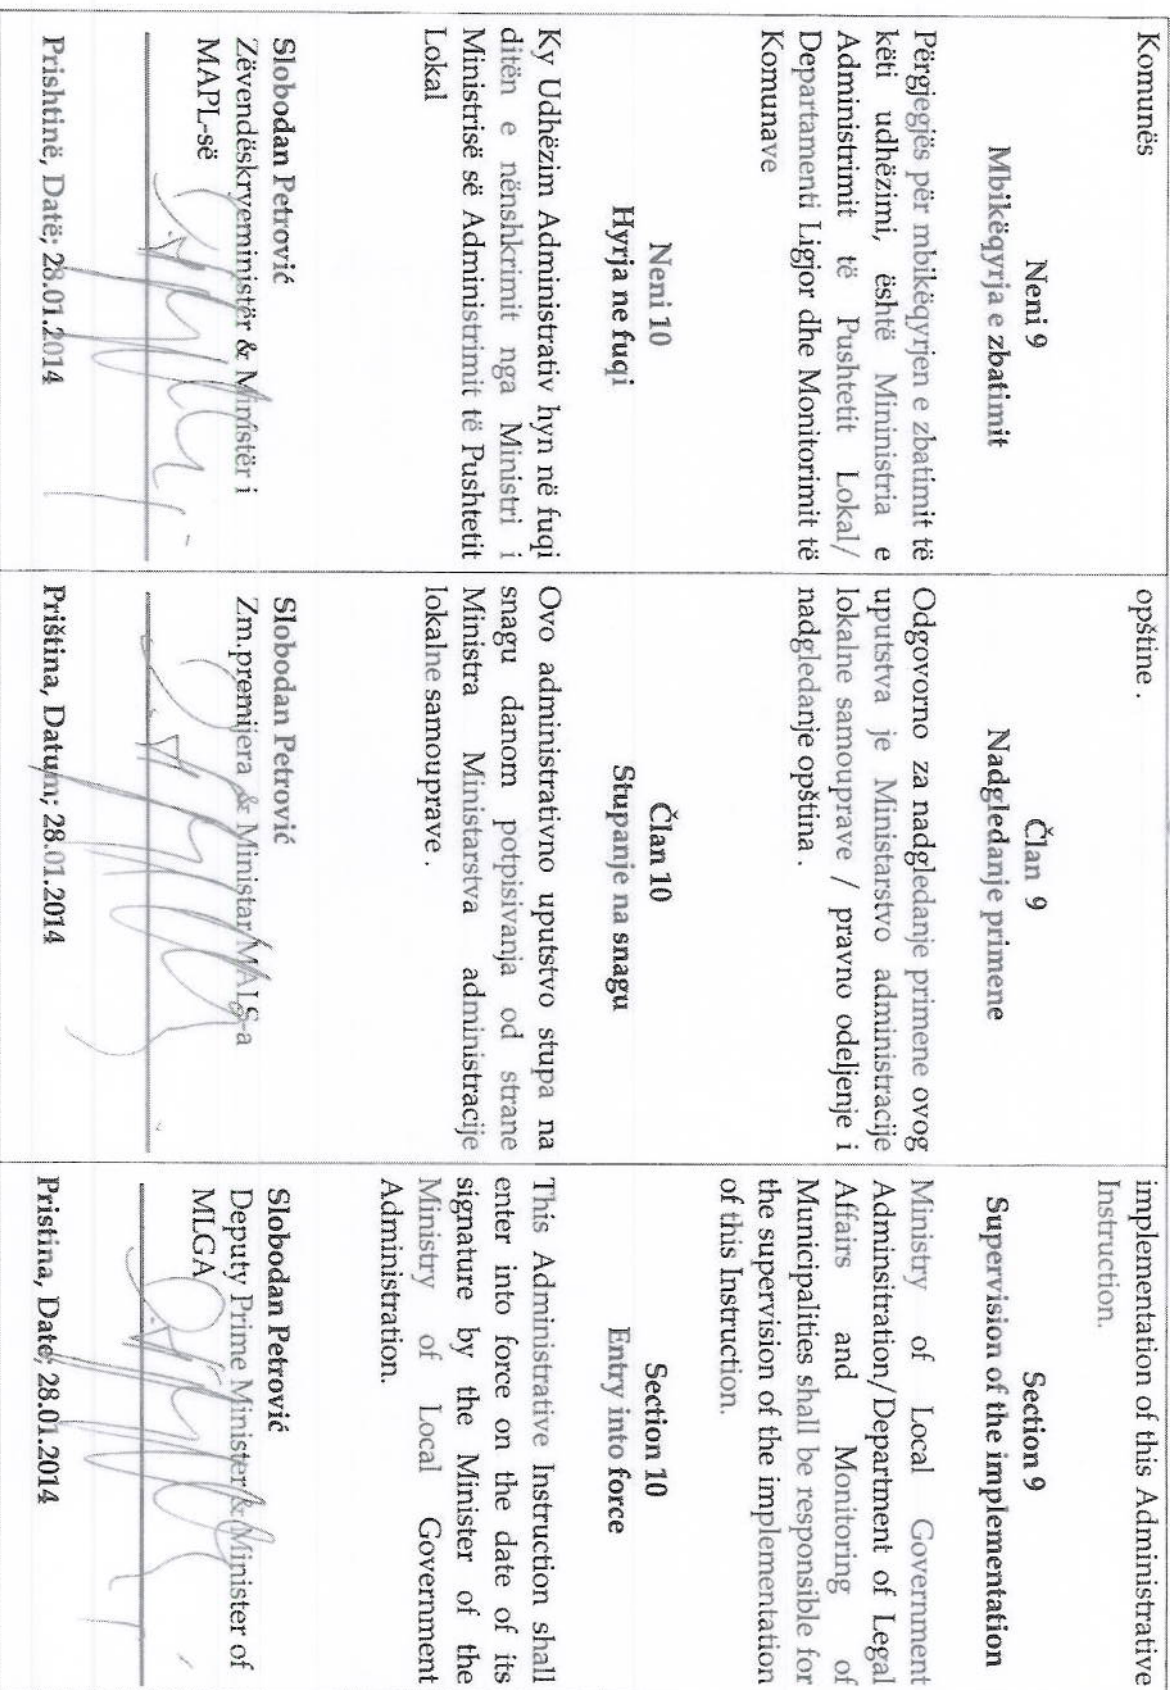 Komunës
Neni 9
Mbikëqyrja e zbatimit
Përgjegjës për mbikëqyrjen e zbatimit të
këti udhëzimi, është Mininistria e
Administrimit të Pushtetit Lokal/
Departamenti Ligjor dhe Monitorimit të
Komunave
Neni 10
Hyrja ne fuqi
Ky Udhëzim Administrativ hyn në fuqi
ditën e nënshkrimit nga Ministri i
Ministrisë së Administrimit të Pushtetit
Lokal
Slobodan Petrović
Zëvendëskryeministër & Ministër i
MAPL-së
Prishtinë, Datë; 28.01.2014
opštine .
Član 9
Nadgledanje primene
Odgovorno za nadgledanje primene ovog
uputstva je Ministarstvo administracije
lokalne samouprave / pravno odeljenje i
nadgledanje opština .
Član 10
Stupanje na snagu
Ovo administrativno uputstvo stupa na
snagu danom potpisivanja od strane
Ministra Ministarstva administracije
lokalne samouprave .
Slobodan Petrović
Zm.premijera & Ministar MALS-a
Priština, Datum; 28.01.2014
implementation of this Administrative
Instruction.
Section 9
Supervision of the implementation
Ministry of Local Government
Adminsitration/Department of Legal
Affairs and Monitoring of
Municipalities shall be responsible for
the supervision of the implementation
of this Instruction.
Section 10
Entry into force
This Administrative Instruction shall
enter into force on the date of its
signature by the Minister of the
Ministry of Local Government
Administration.
Slobodan Petrović
Deputy Prime Minister & Minister of
MLGA
Pristina, Date; 28.01.2014